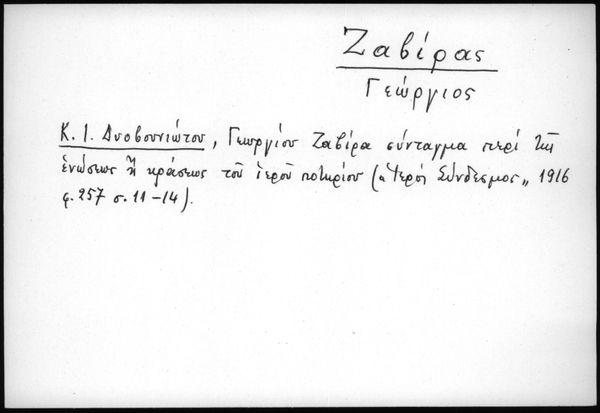 Ζαβίρας
Γεώργιος
Κ. Ι. Δυοβουνιώτου, Γεωργίου Ζαβίρα σύνταγμα περί τῆς
ἑνώσεως ἢ κράσεως τοῦ ἱεροῦ ποτηρίου („Ἱερὸς Σύνδεσμος„ 1916
φ. 257 σ. 11-14).